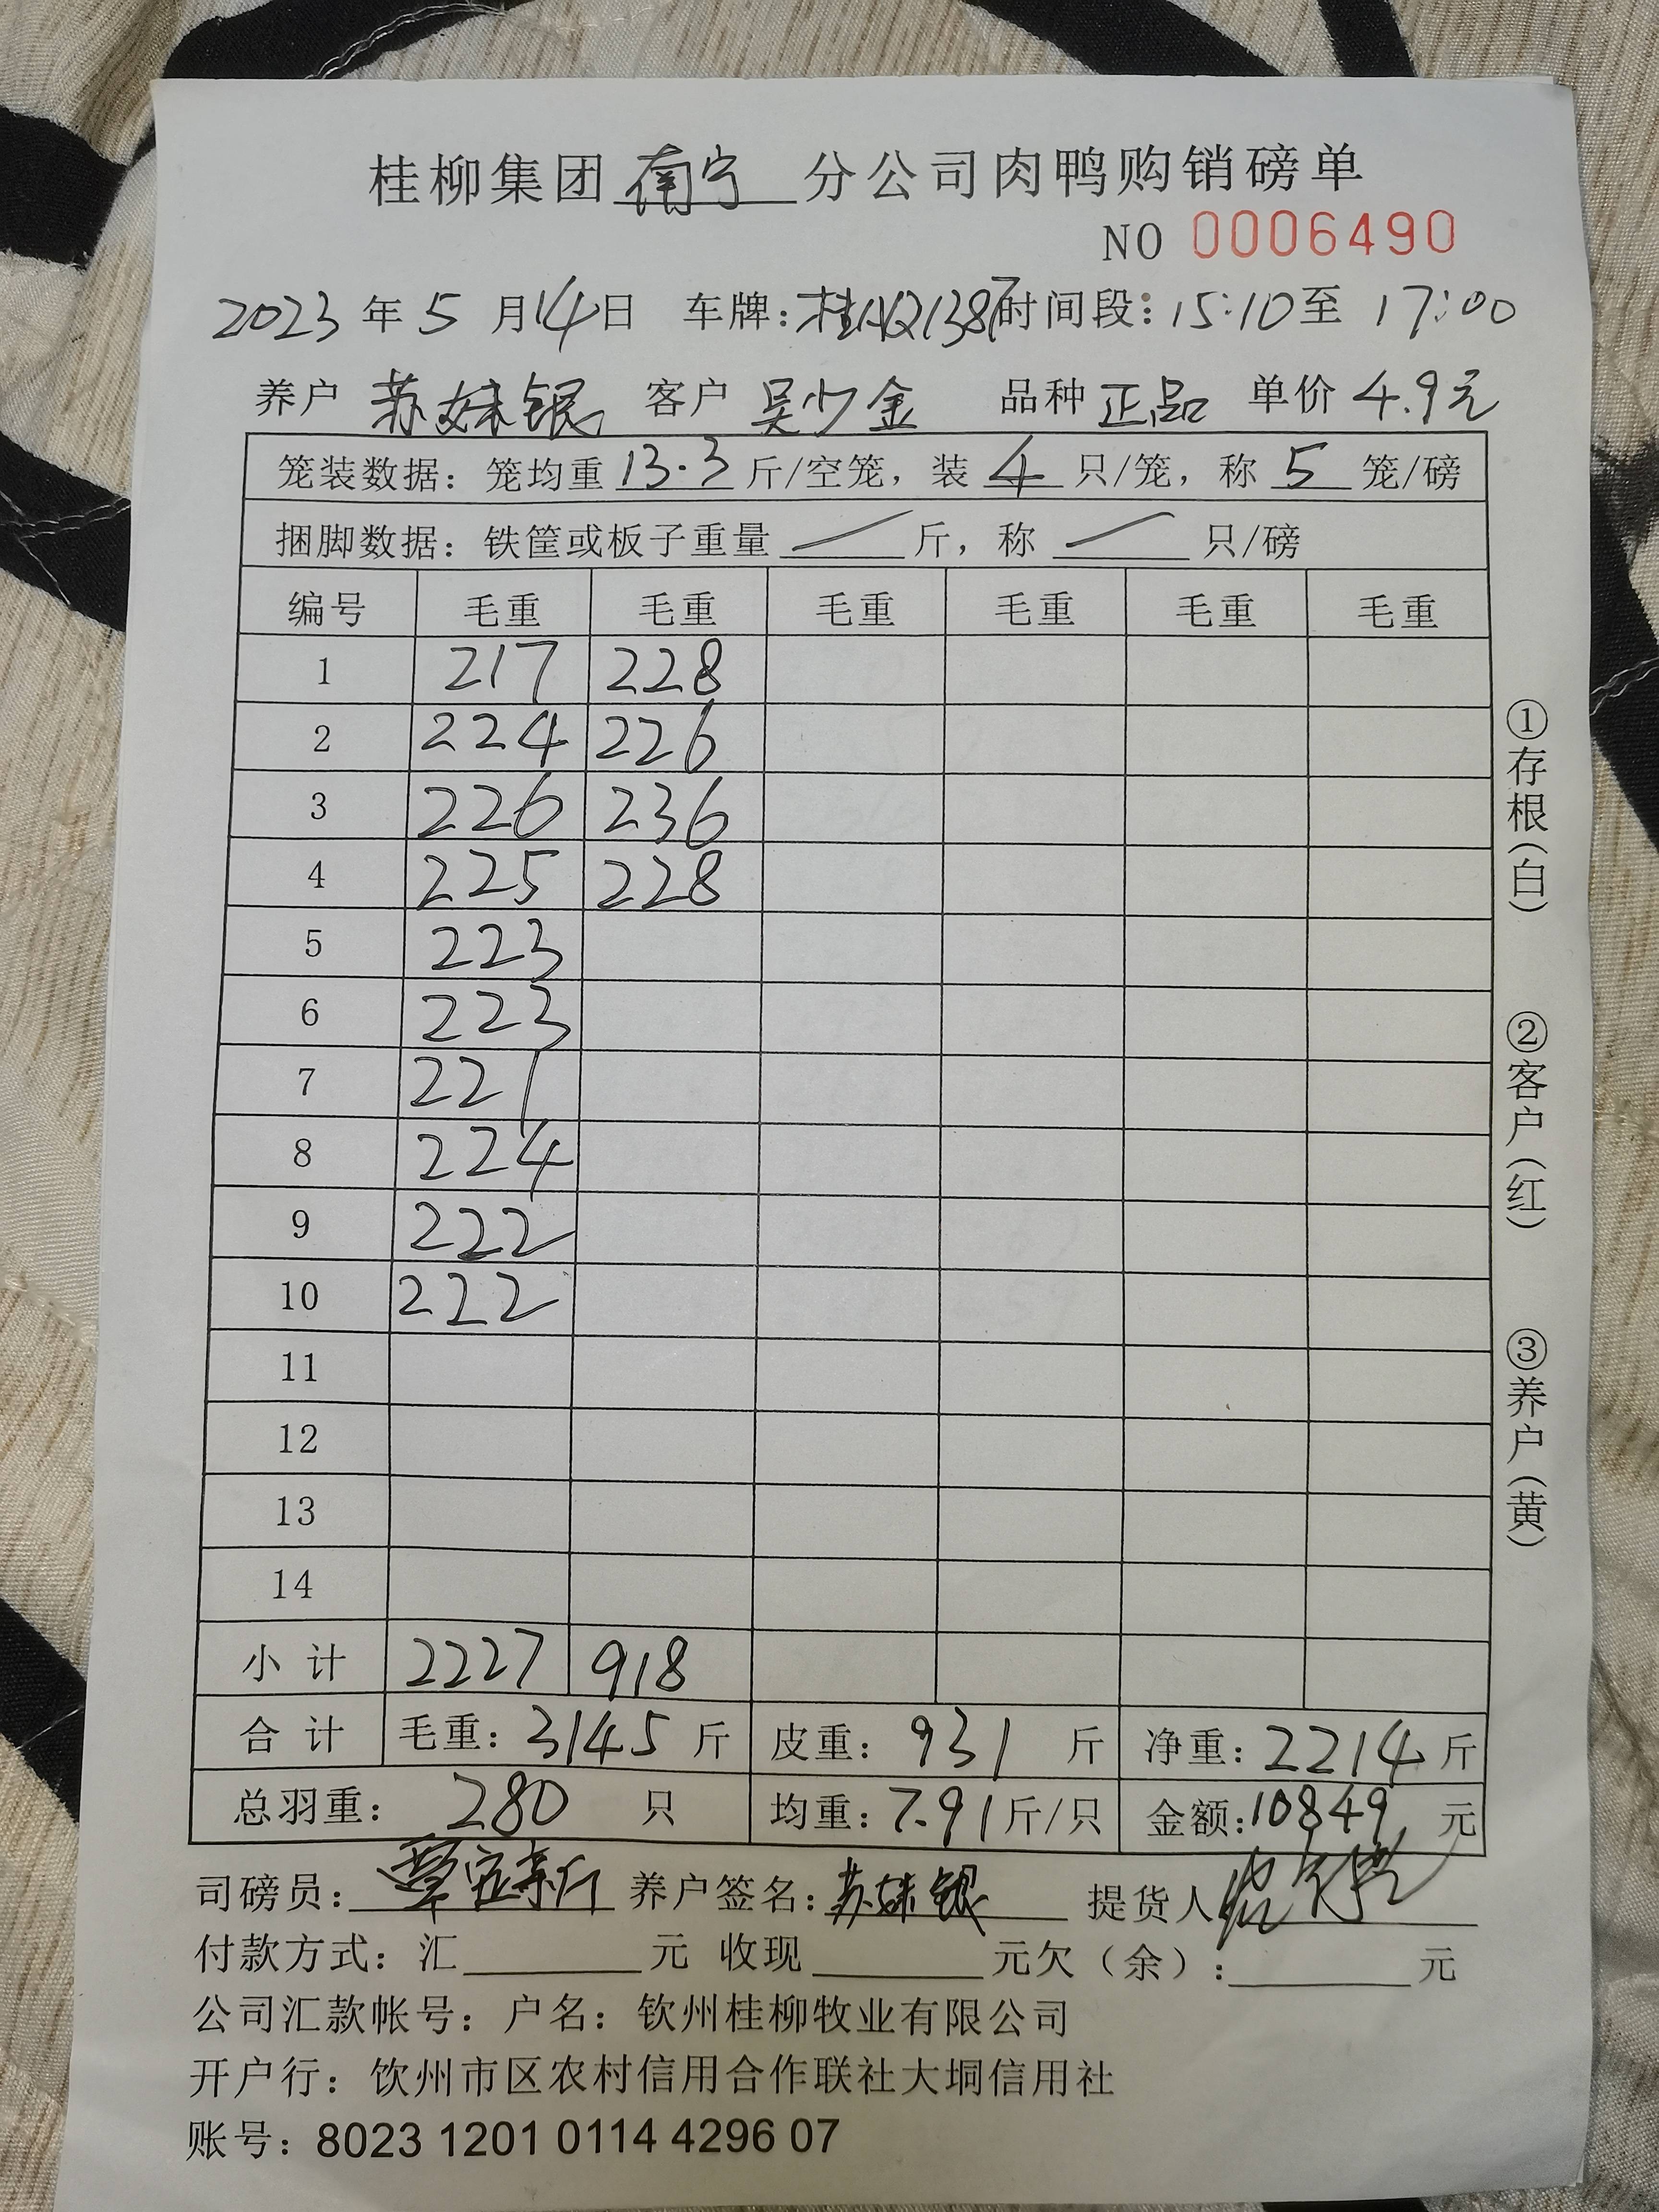 桂柳集团南宁分公司肉鸭购销磅单
NO 0006490
2023年5月14日 车牌:桂AQ1387 时间段:15:10至17:00
养户 苏妹银 客户 吴少金 品种 正品 单价 4.9元
笼装数据:笼均重13.3斤/空笼,装4只/笼,称5笼/磅
捆脚数据:铁筐或板子重量 / 斤,称 / 只/磅
编号 毛重 毛重 毛重 毛重 毛重 毛重
1 217 228
2 224 226
3 226 236
4 225 228
5 223
6 223
7 221
8 224
9 222
10 222
11
12
13
14
小计 2227 918
合计 毛重:3145斤 皮重:931斤 净重:2214斤
总羽重:280只 均重:7.91斤/只 金额:10849元
司磅员: 养户签名:苏妹银 提货人
付款方式:汇 元 收现 元欠(余): 元
公司汇款帐号:户名:钦州桂柳牧业有限公司
开户行:饮州市区农村信用合作联社大垌信用社
账号:8023 1201 0114 4296 07
①存根(白) ②客户(红) ③养户(黄)